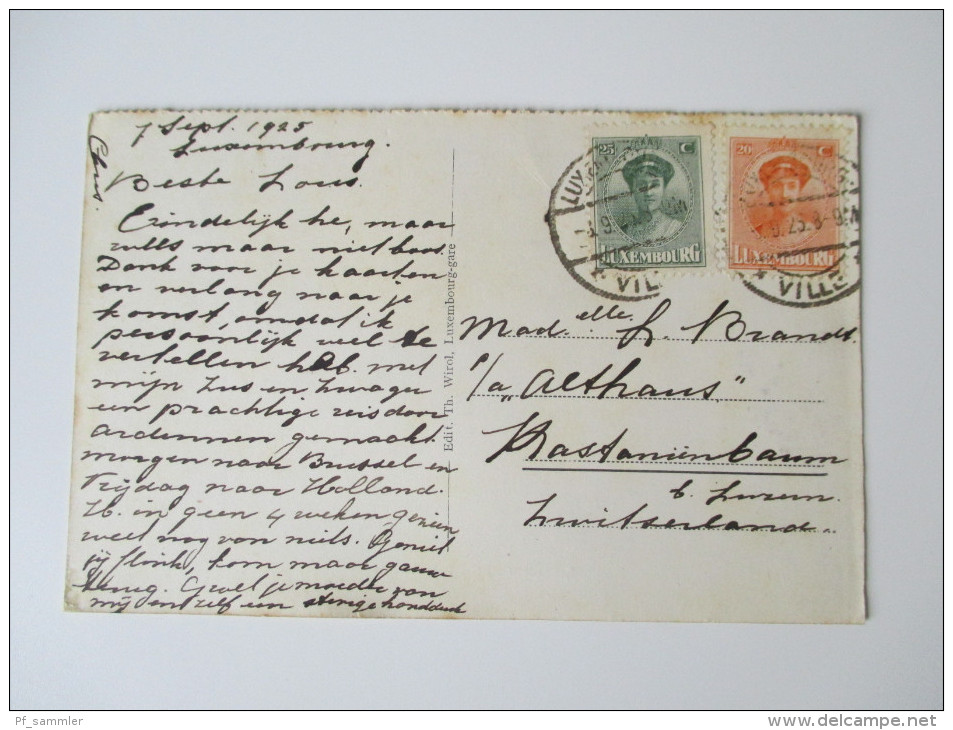 7 Sept. 1925
Luxembourg.
Beste Lous.
Eindelijk he, maar
zelfs maar niet boos.
Dank voor je kaarten
en verlang naar je
komst, omdat ik
persoonlijk veel te
vertellen heb. met
mijn zus en zwager
een prachtige reis door
Ardennen gemaakt.
morgen naar Brussel en
Vrijdag naar Holland.
H. in geen 4 weken gezien
weet nog van niets. Geniet
jij flink, kom maar gauw
terug. Groet je moeder van
mij en zelf een stevige handdruk
Chus.
Edit. Th. Wirol, Luxembourg-gare
25 C
LUXEMBOURG
20 C
LUXEMBOURG
VILLE
Mad.elle. L. Brandt.
p/a "Althaus"
Kastaniënbaum
b. Luzern.
Zwitserland.
Pf_sammler
http://www.delcampe.net